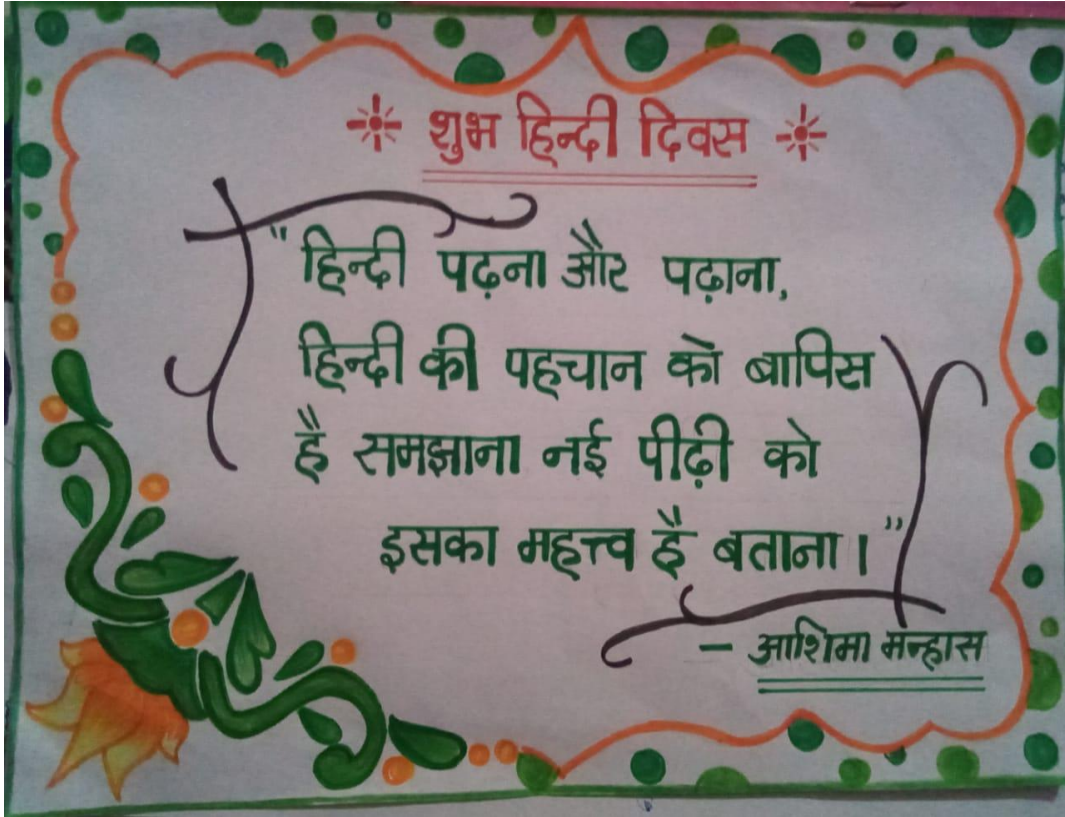 शुभ हिन्दी दिवस
"हिन्दी पढ़ना और पढ़ाना,
हिन्दी की पहचान को बापिस
है समझाना नई पीढ़ी को
इसका महत्त्व है बताना।"
– आशिमा मन्हास